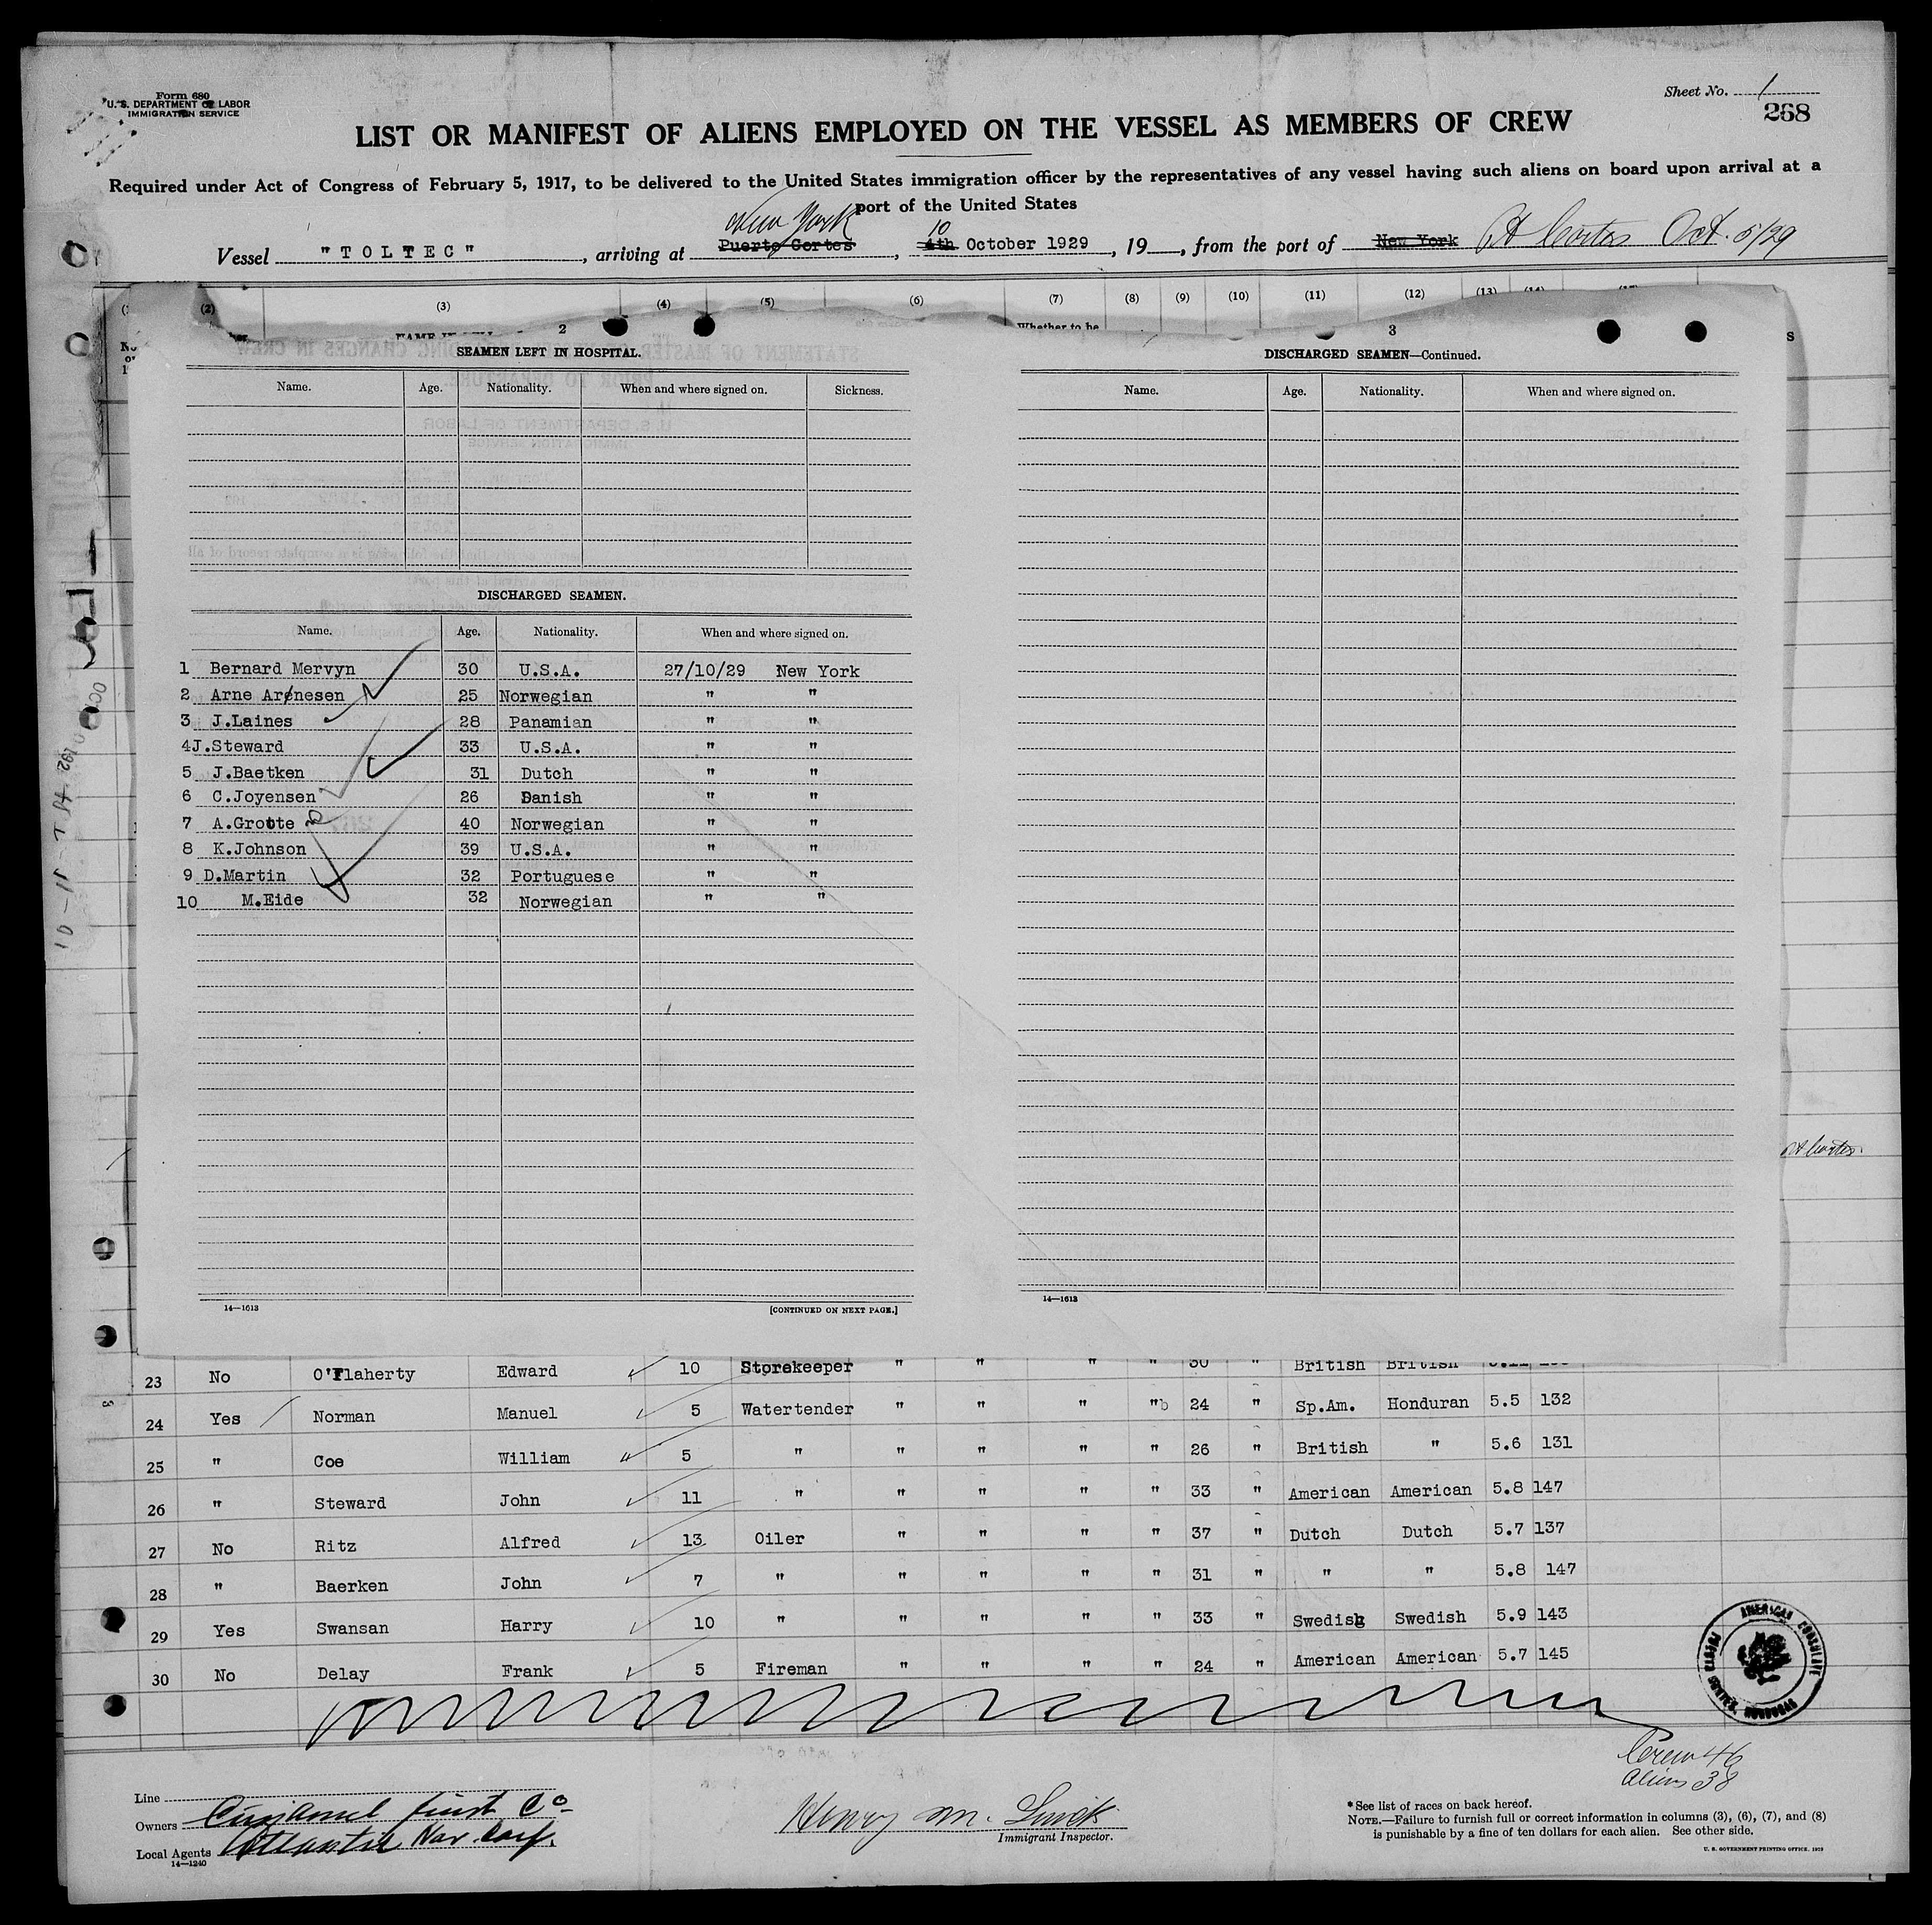 Form 680
U. S. DEPARTMENT OF LABOR
IMMIGRATION SERVICE
Sheet No. 1
268
LIST OR MANIFEST OF ALIENS EMPLOYED ON THE VESSEL AS MEMBERS OF CREW
Required under Act of Congress of February 5, 1917, to be delivered to the United States immigration officer by the representatives of any vessel having such aliens on board upon arrival at a
port of the United States
New York 10
Vessel "TOLTEC", arriving at Puerto Cortes, 4th October 1929, 19, from the port of New York Pt Cortes Oct. 5/29
(2) (3) (4) (5) (6) (7) (8) (9) (10) (11) (12) (13)
Whether to be
2
SEAMEN LEFT IN HOSPITAL.
Name. Age. Nationality. When and where signed on. Sickness.
DISCHARGED SEAMEN.
Name. Age. Nationality. When and where signed on.
1 Bernard Mervyn 30 U.S.A. 27/10/29 New York
2 Arne Arenesen 25 Norwegian " "
3 J.Laines 28 Panamian " "
4 J.Steward 33 U.S.A. " "
5 J.Baetken 31 Dutch " "
6 C.Joyensen 26 Danish " "
7 A.Grotte 40 Norwegian " "
8 K.Johnson 39 U.S.A. " "
9 D.Martin 32 Portuguese " "
10 M.Eide 32 Norwegian " "
14—1613
[CONTINUED ON NEXT PAGE.]
3
DISCHARGED SEAMEN—Continued.
Name. Age. Nationality. When and where signed on.
14—1613
Pt Cortes
23 No O'Flaherty Edward 10 Storekeeper " " " " 30 " British British
24 Yes Norman Manuel 5 Watertender " " " " 24 " Sp.Am. Honduran 5.5 132
25 " Coe William 5 " " " " " 26 " British " 5.6 131
26 " Steward John 11 " " " " " 33 " American American 5.8 147
27 No Ritz Alfred 13 Oiler " " " " 37 " Dutch Dutch 5.7 137
28 " Baerken John 7 " " " " " 31 " " " 5.8 147
29 Yes Swansan Harry 10 " " " " " 33 " Swedish Swedish 5.9 143
30 No Delay Frank 5 Fireman " " " " 24 " American American 5.7 145
AMERICAN CONSULATE
PUERTO CORTES, HONDURAS
Crew 46
Aliens 38
Line
Owners Cuyamel Fruit Co
Local Agents Atlantic Nav. Corp.
14—1240
Henry M.
Immigrant Inspector.
* See list of races on back hereof.
NOTE.—Failure to furnish full or correct information in columns (3), (6), (7), and (8)
is punishable by a fine of ten dollars for each alien. See other side.
U. S. GOVERNMENT PRINTING OFFICE. 1929